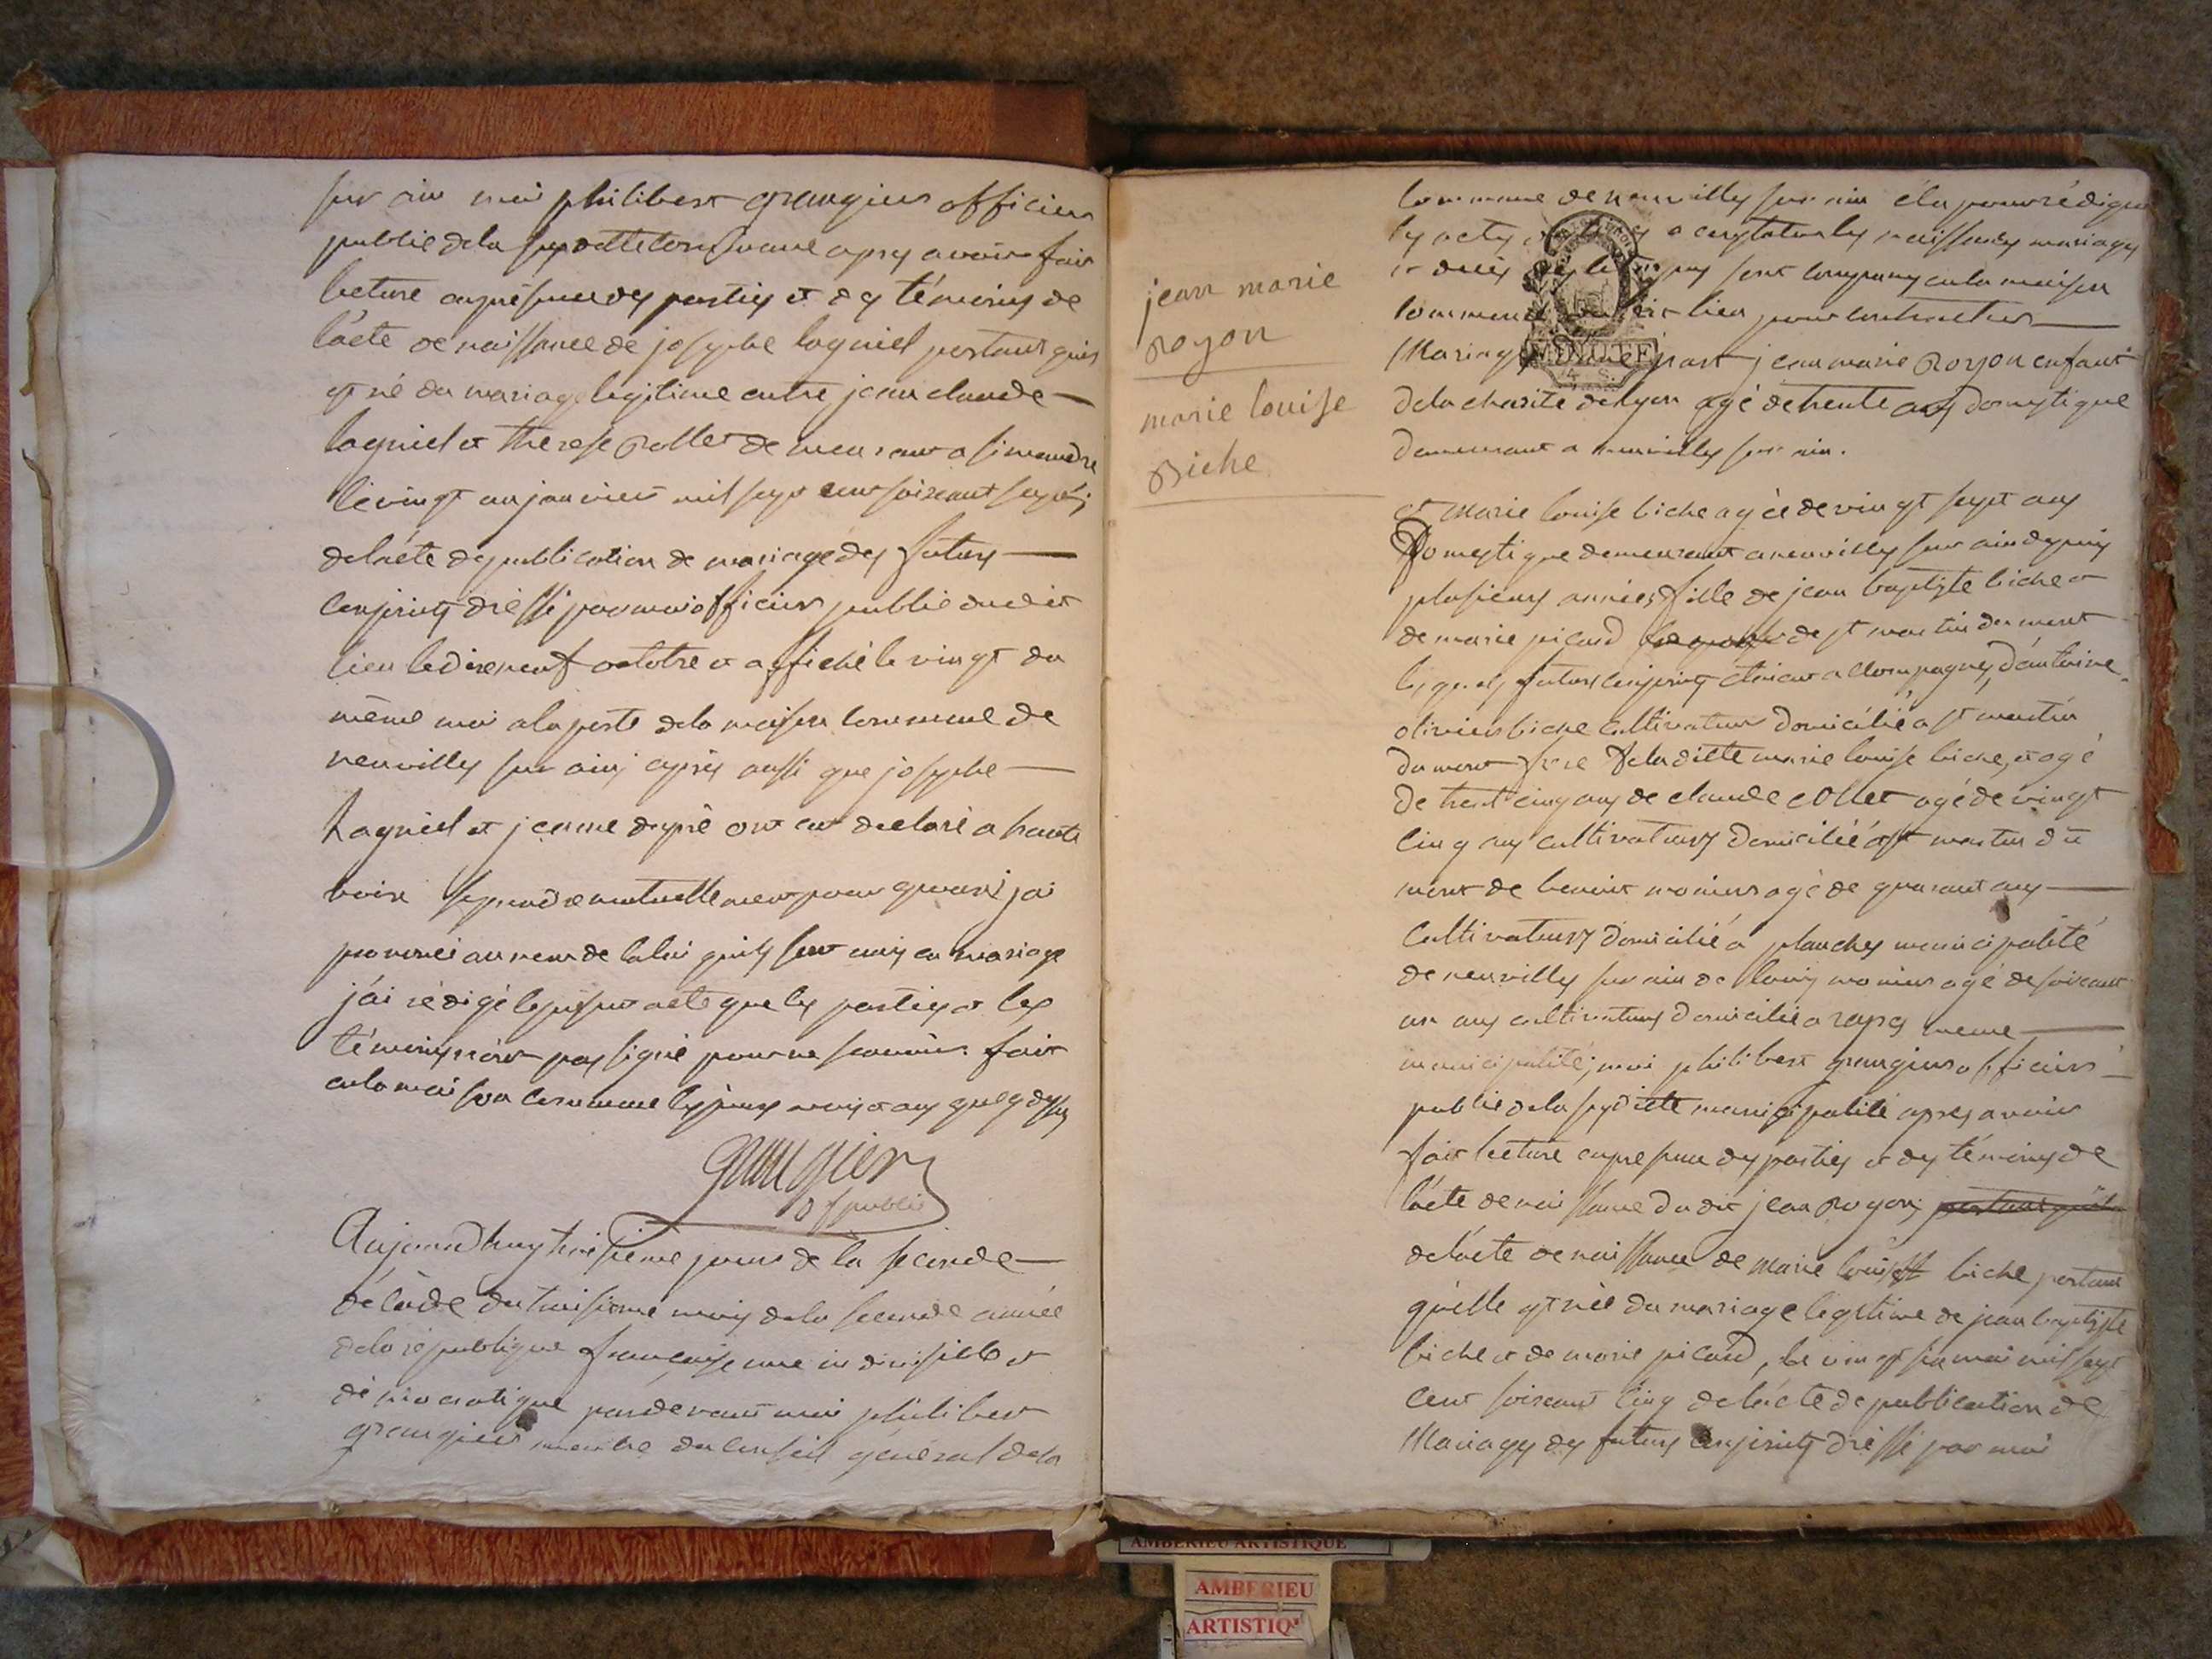 sur ain moi philibert grangier officier
public dela susdette commune apres avoir fait
lecture en présence des parties et des témoins de
l'acte de naissance de josephe lagniel portant quis
est né du mariage legitime entre jean claude
lagniel et therese Rollet demeurant a simandre
le vingt un janvier mil sept cent soixant sept;
de l'acte de publication de mariage des futurs
conjoints dréssé par moi officier public dudit
lieu le dixneuf octobre et affiché le vingt du
même moi a la porte dela maison commune de
neuville sur ain; après aussi que josephe
Lagniel et jeanne dupré ont eut declaré a haute
voix se prendre mutuellement pour quoi j'ai
prononcé au nom de la loi quils sont unis en mariage
j'ai rédigé le présent acte que les parties et les
témoins n'ont pas signé pour ne scavoir fait
en la maison commune les jours mois et an que dessus
grangier
of public
Aujourdhuy troisieme jour de la seconde
décade du troisieme mois dela seconde année
dela république françaises une indivisible et
démocratique pardevant moi philibert
grangier membre du conseil général dela
jean marie
Royon
marie louise
Biche
commune de neuville sur ain élu pour rédiger
les actes a constater les naissances mariages
et decès des sont comparus en la maison
commune lieu pour contracter
MINUTE
Mariage d'une part jean marie Royon enfant
dela charité de lyon agé de trente ans domestique
demeurant a neuville sur ain.
et Marie louise biche agée de vingt sept ans
Domestique demeurant a neuville sur ain depuis
plusieurs années fille de jean baptiste biche et
de marie picard de st martin du mont
lesquels futurs conjoints étoient accompagnés d'antoine
olivier biche cultivateur domicilié a st martin
du mont frere de la ditte marie louise biche, et agé
de trent cinq ans de claude collet agé de vingt
cinq ans cultivateurs domicilié a st martin du
mont de benoit monier agé de quarant ans
cultivateurs domicilié a planches municipalité
de neuville sur ain de louis monier agé de soixant
un ans cultivateurs domicilié a rapes meme
municipalité; moi philibert grangier officier
public dela susditte municipalité apres avoir
fait lecture en presence des parties et des témoins de
l'acte de naissance du dit jean Royon; portant qu'il
de l'acte de naissance de marie louise biche portant
qu'elle est née du mariage legitime de jean baptiste
biche et de marie picard, le vingt six mai mil sept
cent soixant cinq de l'acte de publication de
Mariages des futurs conjoints dréssé par moi
AMBERIEU ARTISTIQUE
AMBERIEU
ARTISTIQ